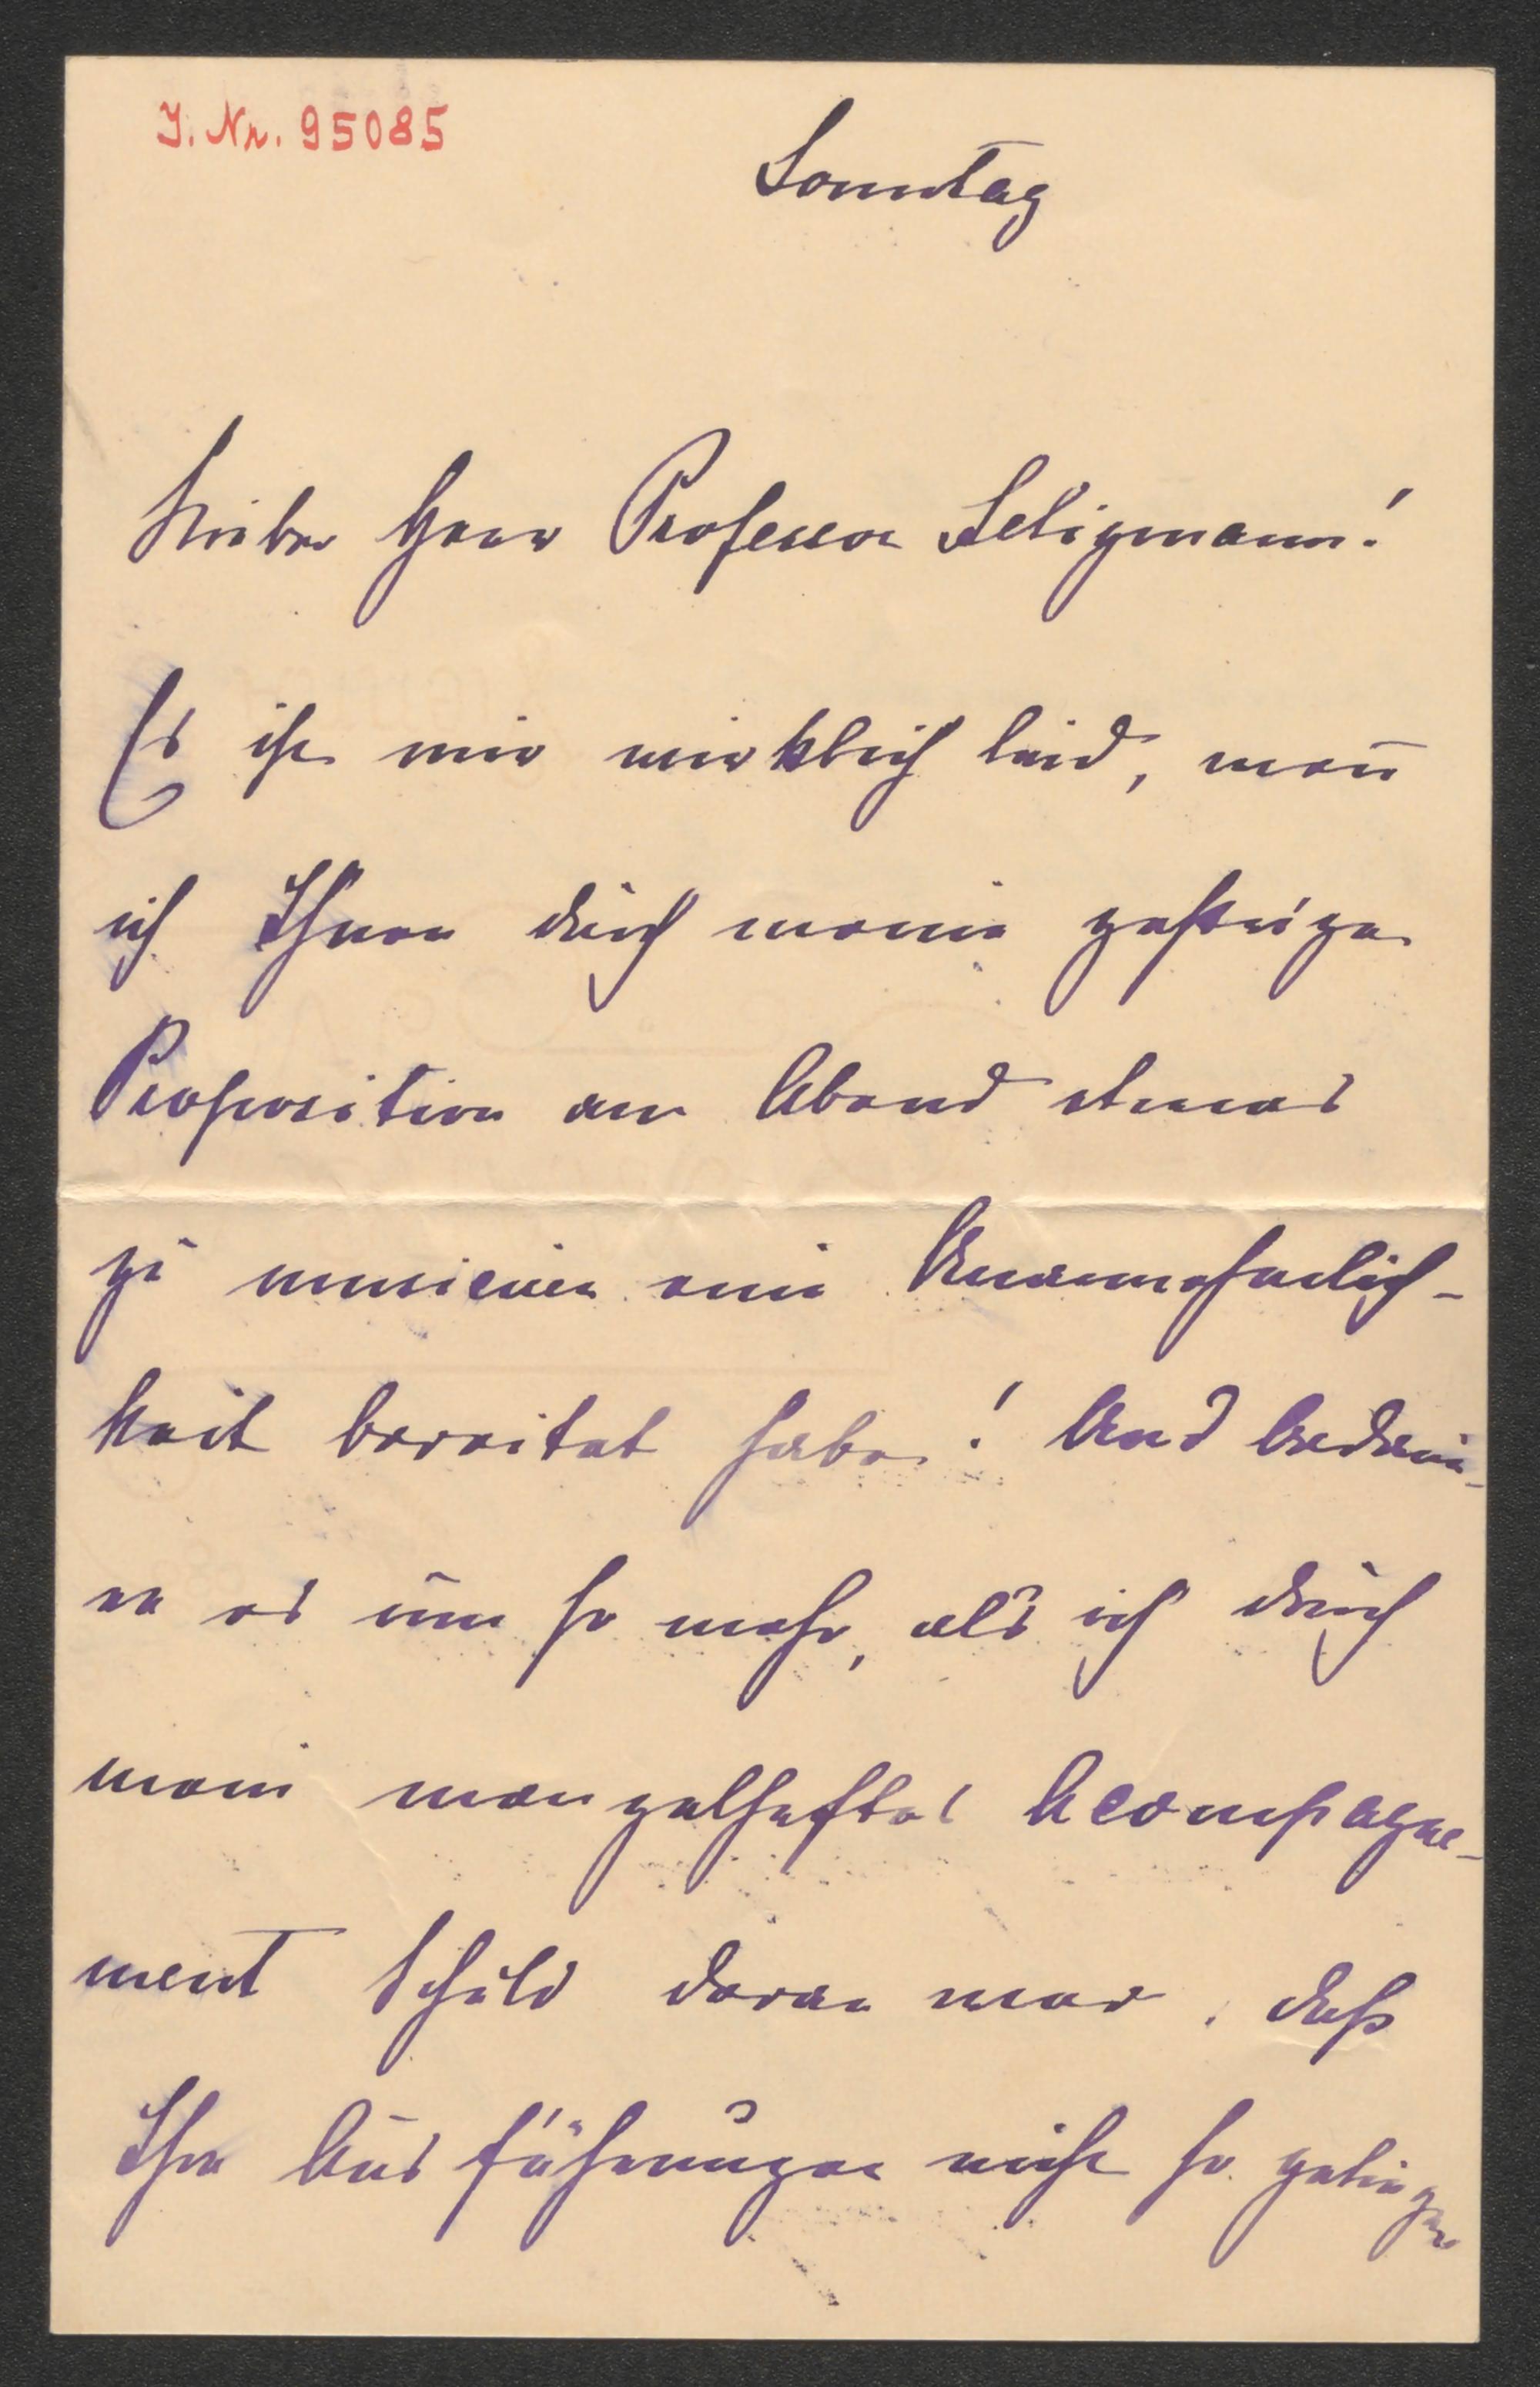 J. Nr. 95085
Sonntag
Lieber Herr Professor Seligmann!
Es ist mir wirklich leid, wenn
ich Ihnen durch meine gestrige
Proposition am Abend etwas
zu musiciren eine Unannehmlich-
keit bereitet habe! Und bedaue-
re es um so mehr, als ich durch
mein mangelhaftes Acompagne-
ment Schuld daran war, daß
Ihre Ausführungen nicht so gelingen